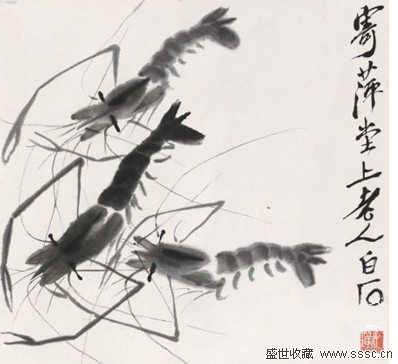 寄萍堂上老人白石
盛世收藏 www.sssc.cn